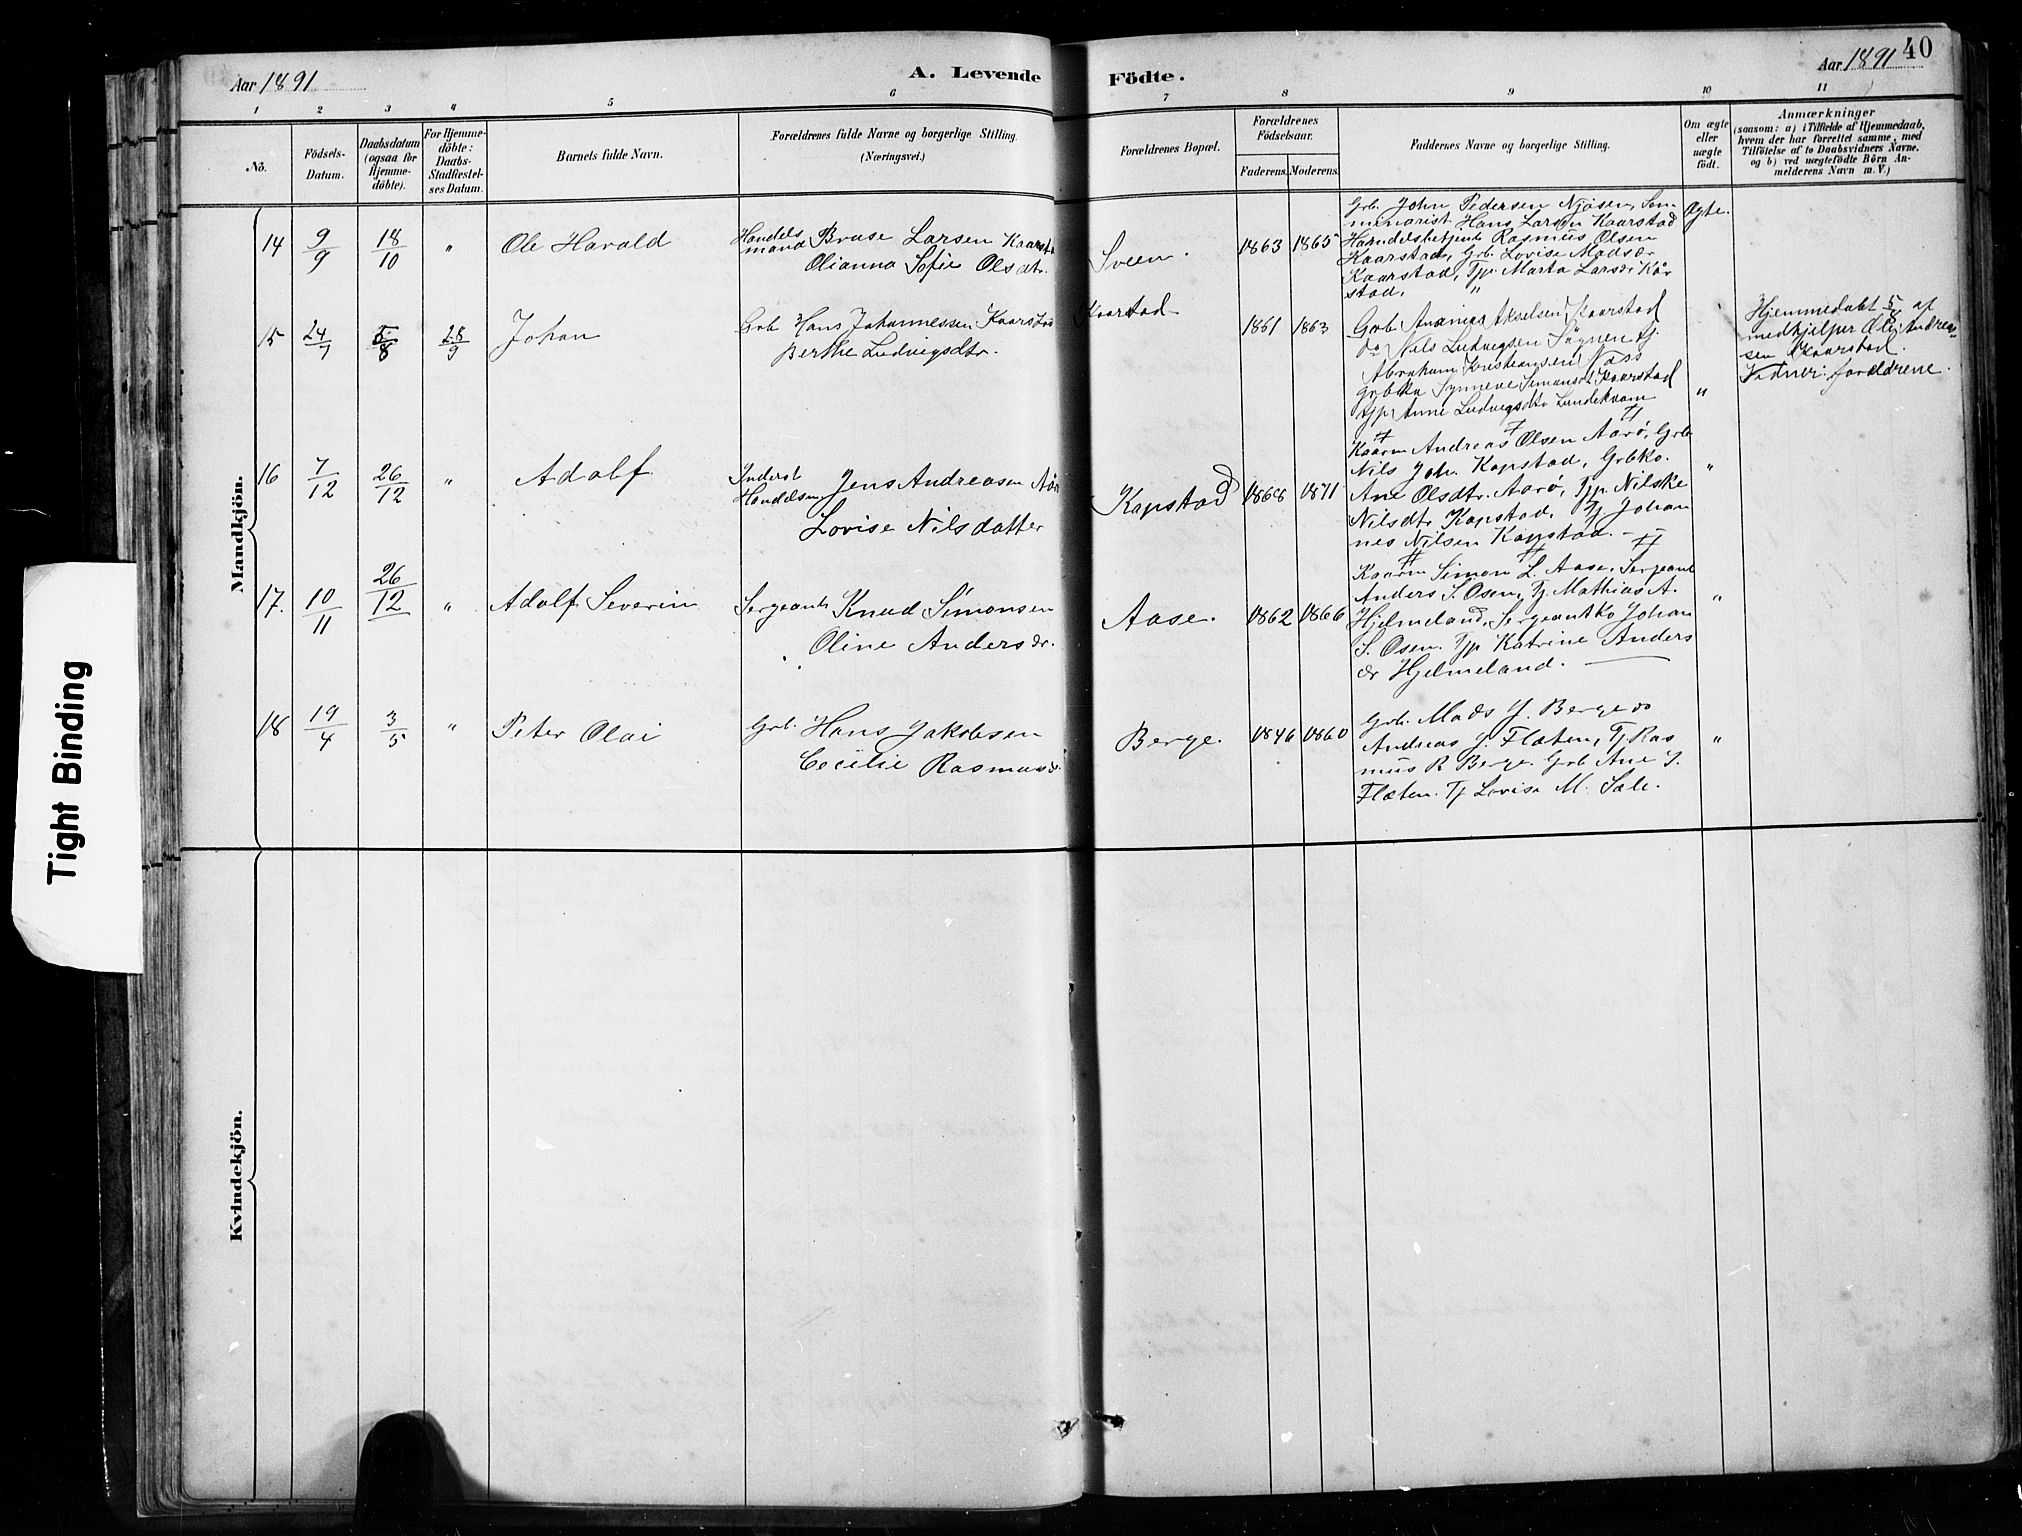 Aar 1891
A. Levende Födte.
Aar 1891
40
1 2 3 4 5 6 7 8 9 10 11
No.
Födsels-
Datum.
Daabsdatum
(ogsaa for
Hjemme-
döbte).
For Hjemme-
döbte:
Daabs-
Stadfæstel-
ses Datum.
Barnets fulde Navn.
Forældrenes fulde Navne og borgerlige Stilling.
(Næringsvei.)
Forældrenes Bopæl.
Forældrenes
Födselsaar.
Faderens. Moderens.
Faddernes Navne og borgerlige Stilling.
Om ægte
eller
uægte
födt.
Anmærkninger
(saasom: a) i Tilfælde af Hjemmedaab,
hvem der har forrettet samme, med
Tilföielse af to Daabsvidners Navne,
og b) ved uægtefödte Börn An-
melderens Navn m. V.)
Mandkjön.
14 9/9 18/10 " Ole Harald
Handels
mand Brase Larsen Kaarstad
Olianna Sofie Olsdtr.
Sveen.
1863 1865
Grb. John Pedersen Njøsen, Sem-
minarist Hans Larsen Kaarstad
Handelsbetjent Rasmus Olsen
Kaarstad, Grb. Lovise Madsdr
Kaarstad, Tjp. Marta Larsdr Kår
stad.
Ægte.
15 24/7 5/8 28/9 Johan
Grb Hans Johannessen Kaarstad
Berthe Ludvigsdtr.
Kaarstad
1861 1863
Grb Ananias Akselsen Kaarstad
do Nils Ludvigsen Søgnen tj.
Abraham Kristiansen Nass
Grbka Synneve Simonsdt Kaarstad
tjp Anne Ludvigsdtr Lundekvam
"
Hjemmedøbt 5/8 af
medhjelper Ole Andrea-
sen Kaarstad.
Vidner: forældrene.
16 7/12 26/12 " Adolf
Inderst
Handelsm Jens Andreasen Aår
Lovise Nilsdatter
Kapstad
1868 1871
Kaarm Andreas Olsen Aarø, Grb
Nils Joh. Kapstad, Grbko.
Ane Olsdtr. Aarø, Tjp. Nilske
Nilsdtr Kapstad, Tj Johan
nes Nilsen Kapstad.
"
17. 10/11 26/12 " Adolf Severin
Sergeant Knud Simonsen
Oline Andersdr.
Aase.
1862 1866
Kaarm Simon L. Aase, Sergeant
Anders S. Osen, Tj. Mathias A.
Hjelmeland, Sergeantko Johan
S. Osen. Tjp Katrine Anders
dr Hjelmeland.
"
18 19/4 3/5 " Peter Olai
Grb. Hans Jakobsen
Cecilie Rasmusdr.
Berge.
1846 1860
Grb. Mads J. Berge do
Andreas J. Flæten, Tj Ras
mus R Berge. Grb Ane J.
Flæten. Tj Lovise M. Sæle.
"
Kvindekjön.
Tight Binding